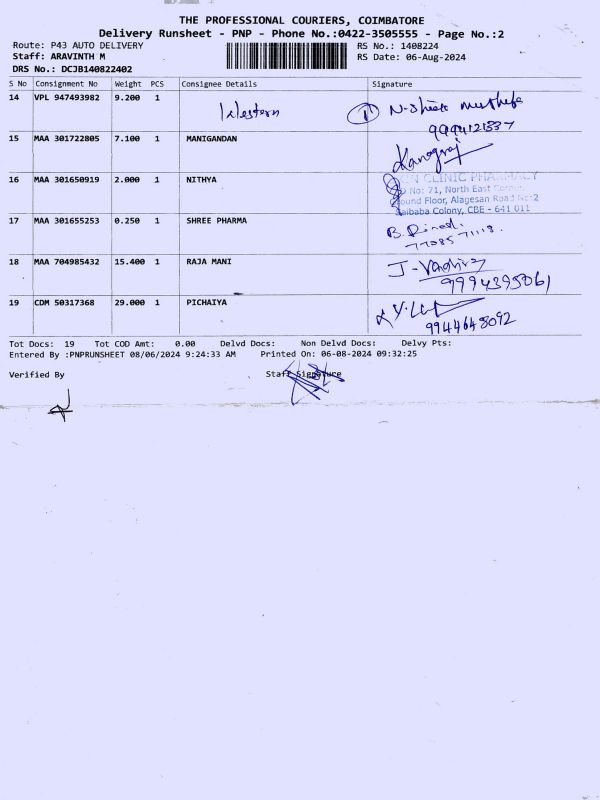 THE PROFESSIONAL COURIERS, COIMBATORE
Delivery Runsheet - PNP - Phone No.:0422-3505555 - Page No.:2
Route: P43 AUTO DELIVERY RS No.: 1408224
Staff: ARAVINTH M RS Date: 06-Aug-2024
DRS No.: DCJB140822402
S No Consignment No Weight PCS Consignee Details Signature
14 VPL 947493982 9.200 1 Western
15 MAA 301722805 7.100 1 MANIGANDAN Kanagraj
16 MAA 301650919 2.000 1 NITHYA CLINIC PHARMACY
No: 71, North East Corner,
Ground Floor, Alagesan Road No:2
Saibaba Colony, CBE - 641 011
17 MAA 301655253 0.250 1 SHREE PHARMA B.
77085 71118.
18 MAA 704985432 15.400 1 RAJA MANI J-
9994395061
19 CDM 50317368 29.000 1 PICHAIYA
9944648092
Tot Docs: 19 Tot COD Amt: 0.00 Delvd Docs: Non Delvd Docs: Delvy Pts:
Entered By :PNPRUNSHEET 08/06/2024 9:24:33 AM Printed On: 06-08-2024 09:32:25
Verified By Staff Signature